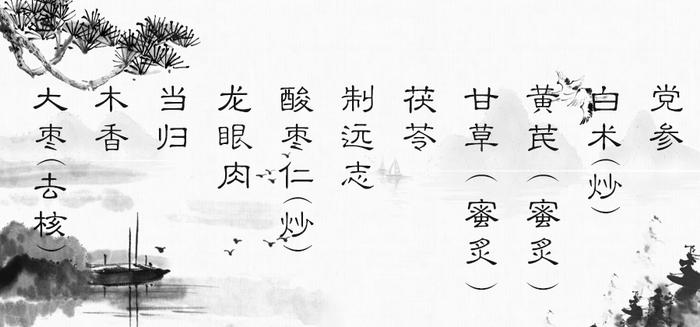 党参
白术(炒)
黄芪(蜜炙)
甘草(蜜炙)
茯苓
制远志
酸枣仁(炒)
龙眼肉
当归
木香
大枣(去核)